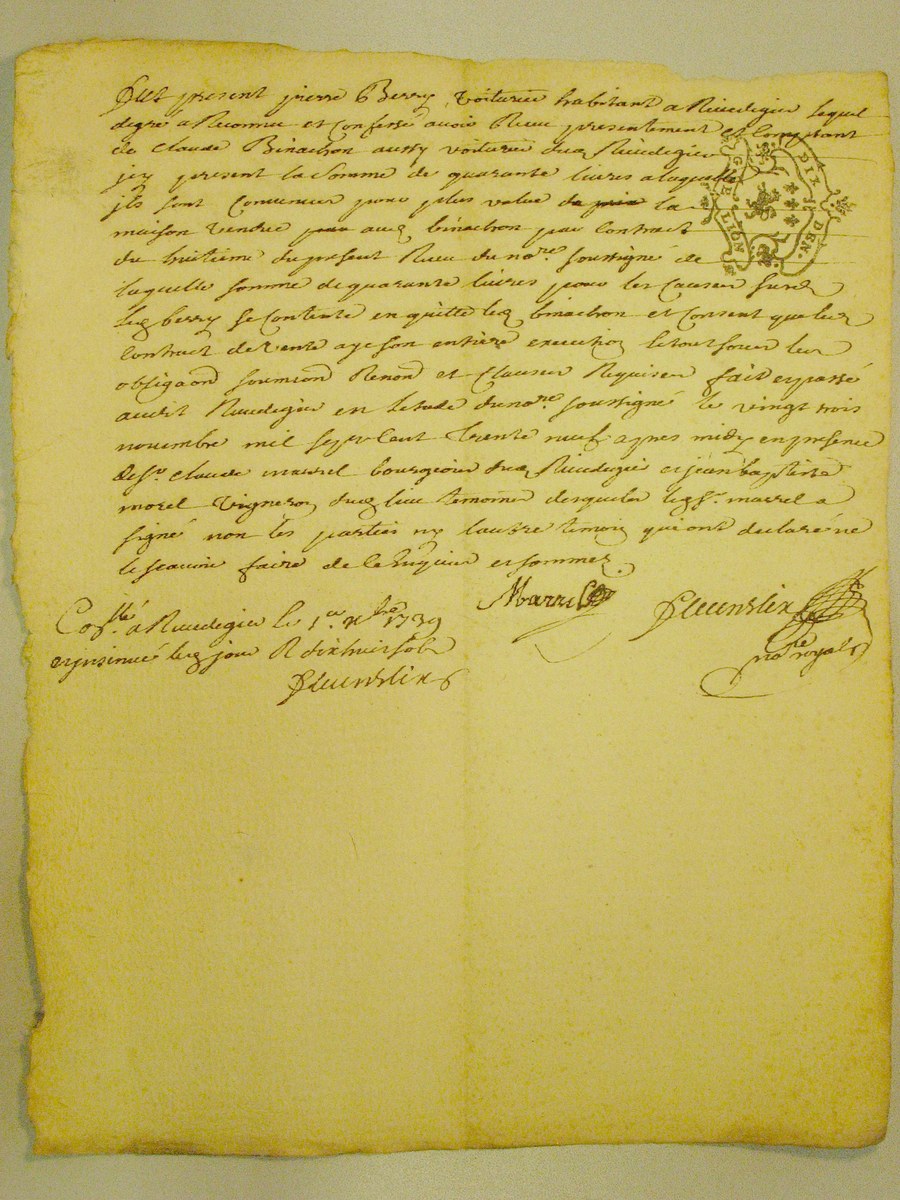 fut present pierre Berry voiturier habitant a Rivedegier lequel
degré a Reconnu et confessé avoir Receu presentement et Comptant
de Claude Binachon aussy voiturier dud Rivedegier
icy present la somme de quarante livres a laquelle
jls sont convenus pour plus value de la
maison vendue aud binachon par contract
du huitieme du present Receu du no.re soussigné de
laquelle somme de quarante livres pour les causes susd
led berry se contente en quitte led binachon et consent que led
contract de vente aye son entiere execution le tout sous les
obligaõn soumiõn Renoñ et clauses Requises fait et passé
audit Rivedegier en letude du no.re soussigné le vingt trois
novembre mil sept cent trente neuf apres midy en presence
de s.r claude marrel bourgeois dud Rivedegier et jean baptiste
morel vigneron dud lieu temoins desquels led s.r marrel a
signé non les parties ny lautre temoin qui ont declaré ne
le scavoir faire de ce enquis et sommes.
Marrel
fleurdelix
no.re royal
Con.llé a Rivedegier le 1.er x.bre 1739
et jnsinué led jour R dixhuit sols
fleurdelix
GE. LION
DIX DEN.